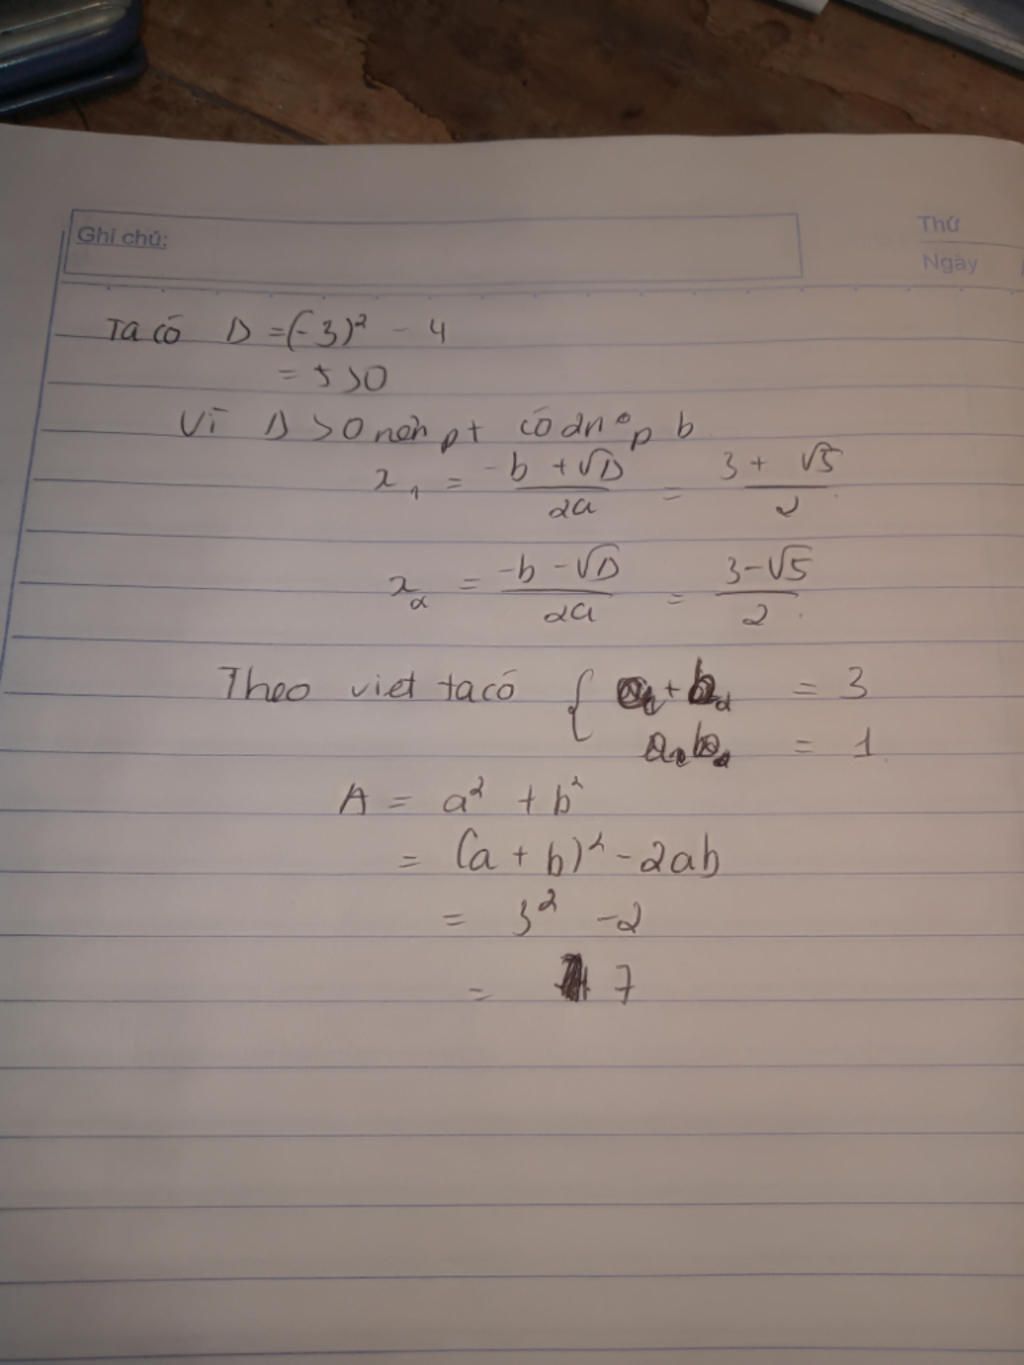 Ghi chú:
Thứ
Ngày
Ta có Δ = (-3)² - 4
= 5 > 0
Vì Δ > 0 nên pt có 2 n⁰ p b
x₁ = (-b + √Δ)/2a = (3 + √5)/2
x₂ = (-b - √Δ)/2a = (3 - √5)/2
Theo viet ta có { a + b = 3
ab = 1
A = a² + b²
= (a + b)² - 2ab
= 3² - 2
= 7